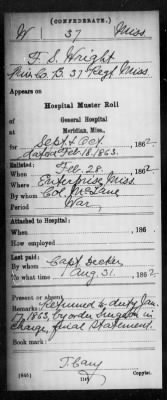 (CONFEDERATE.)
W 37 Miss.
F. S. Wright
Pvt. Co. B. 37 Regt. Miss.
Appears on
Hospital Muster Roll
of
General Hospital
Meridian, Miss.,
for Sept & Oct., 1862.
dated Feb. 18, 1863.
Enlisted:
When Feb. 28, 1862.
Where Enterprise Miss.
By Col. McLane
Period War
Attached to Hospital:
When , 186
How employed
Last paid:
By Capt.
To what time Aug 31, 1862.
Present or absent
Remarks: Returned to duty Jan.
17, 1863, by order Surgeon in
charge, final statement.
Book mark:
T. Cary
(545) Copyist.